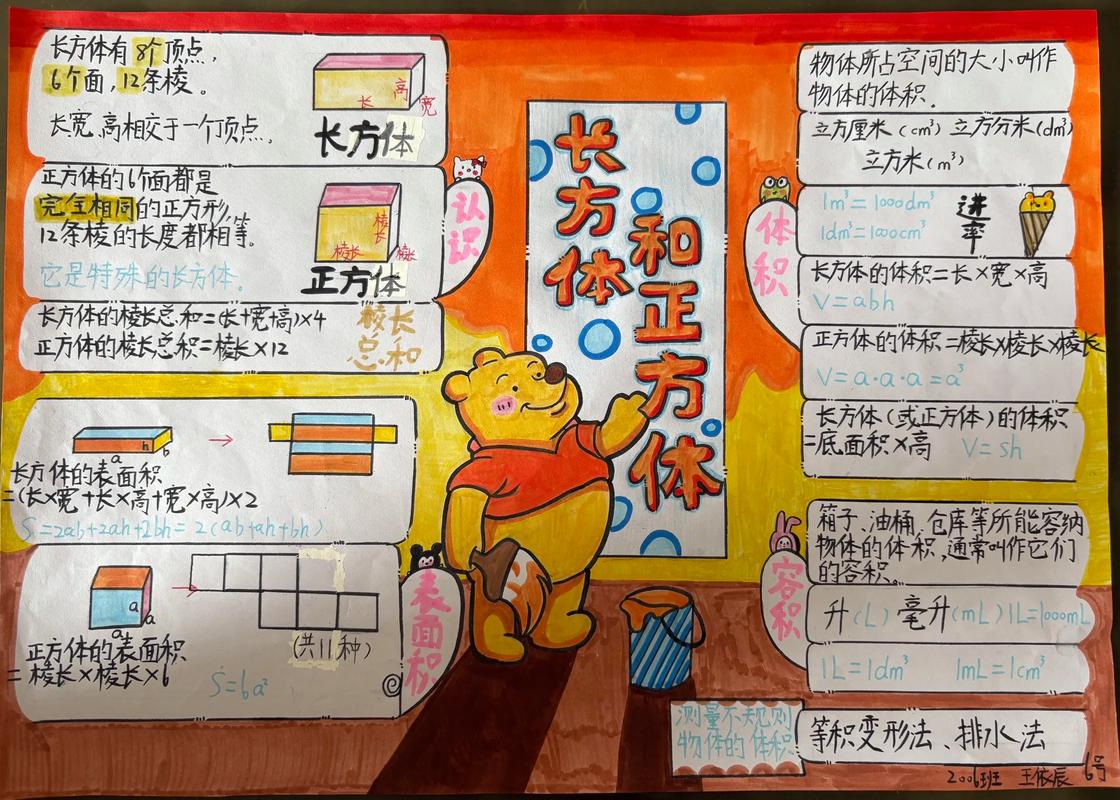 长方体和正方体
认识
长方体有8个顶点，
6个面，12条棱。
长宽、高相交于一个顶点。
长
高
宽
长方体
正方体的6个面都是
完全相同的正方形，
12条棱的长度都相等。
它是特殊的长方体。
棱长
棱长
棱长
正方体
长方体的棱长总和=(长+宽+高)×4
正方体的棱长总积=棱长×12
棱长
总和
表面积
a
h
b
长方体的表面积
=(长×宽+长×高+宽×高)×2
S=2ab+2ah+2bh=2(ab+ah+bh)
a
a
a
(共11种)
正方体的表面积
=棱长×棱长×6
S=6a²
体积
物体所占空间的大小叫作
物体的体积.
立方厘米(cm³) 立方分米(dm³)
立方米(m³)
1m³=1000dm³
1dm³=1000cm³
进率
长方体的体积=长×宽×高
V=abh
正方体的体积=棱长×棱长×棱长
V=a·a·a=a³
长方体(或正方体)的体积
=底面积×高 V=sh
容积
箱子、油桶、仓库等所能容纳
物体的体积,通常叫作它们
的容积。
升(L) 毫升(mL) 1L=1000mL
1L=1dm³ 1mL=1cm³
测量不规则
物体的体积
等积变形法、排水法
2006班 王依辰 6号